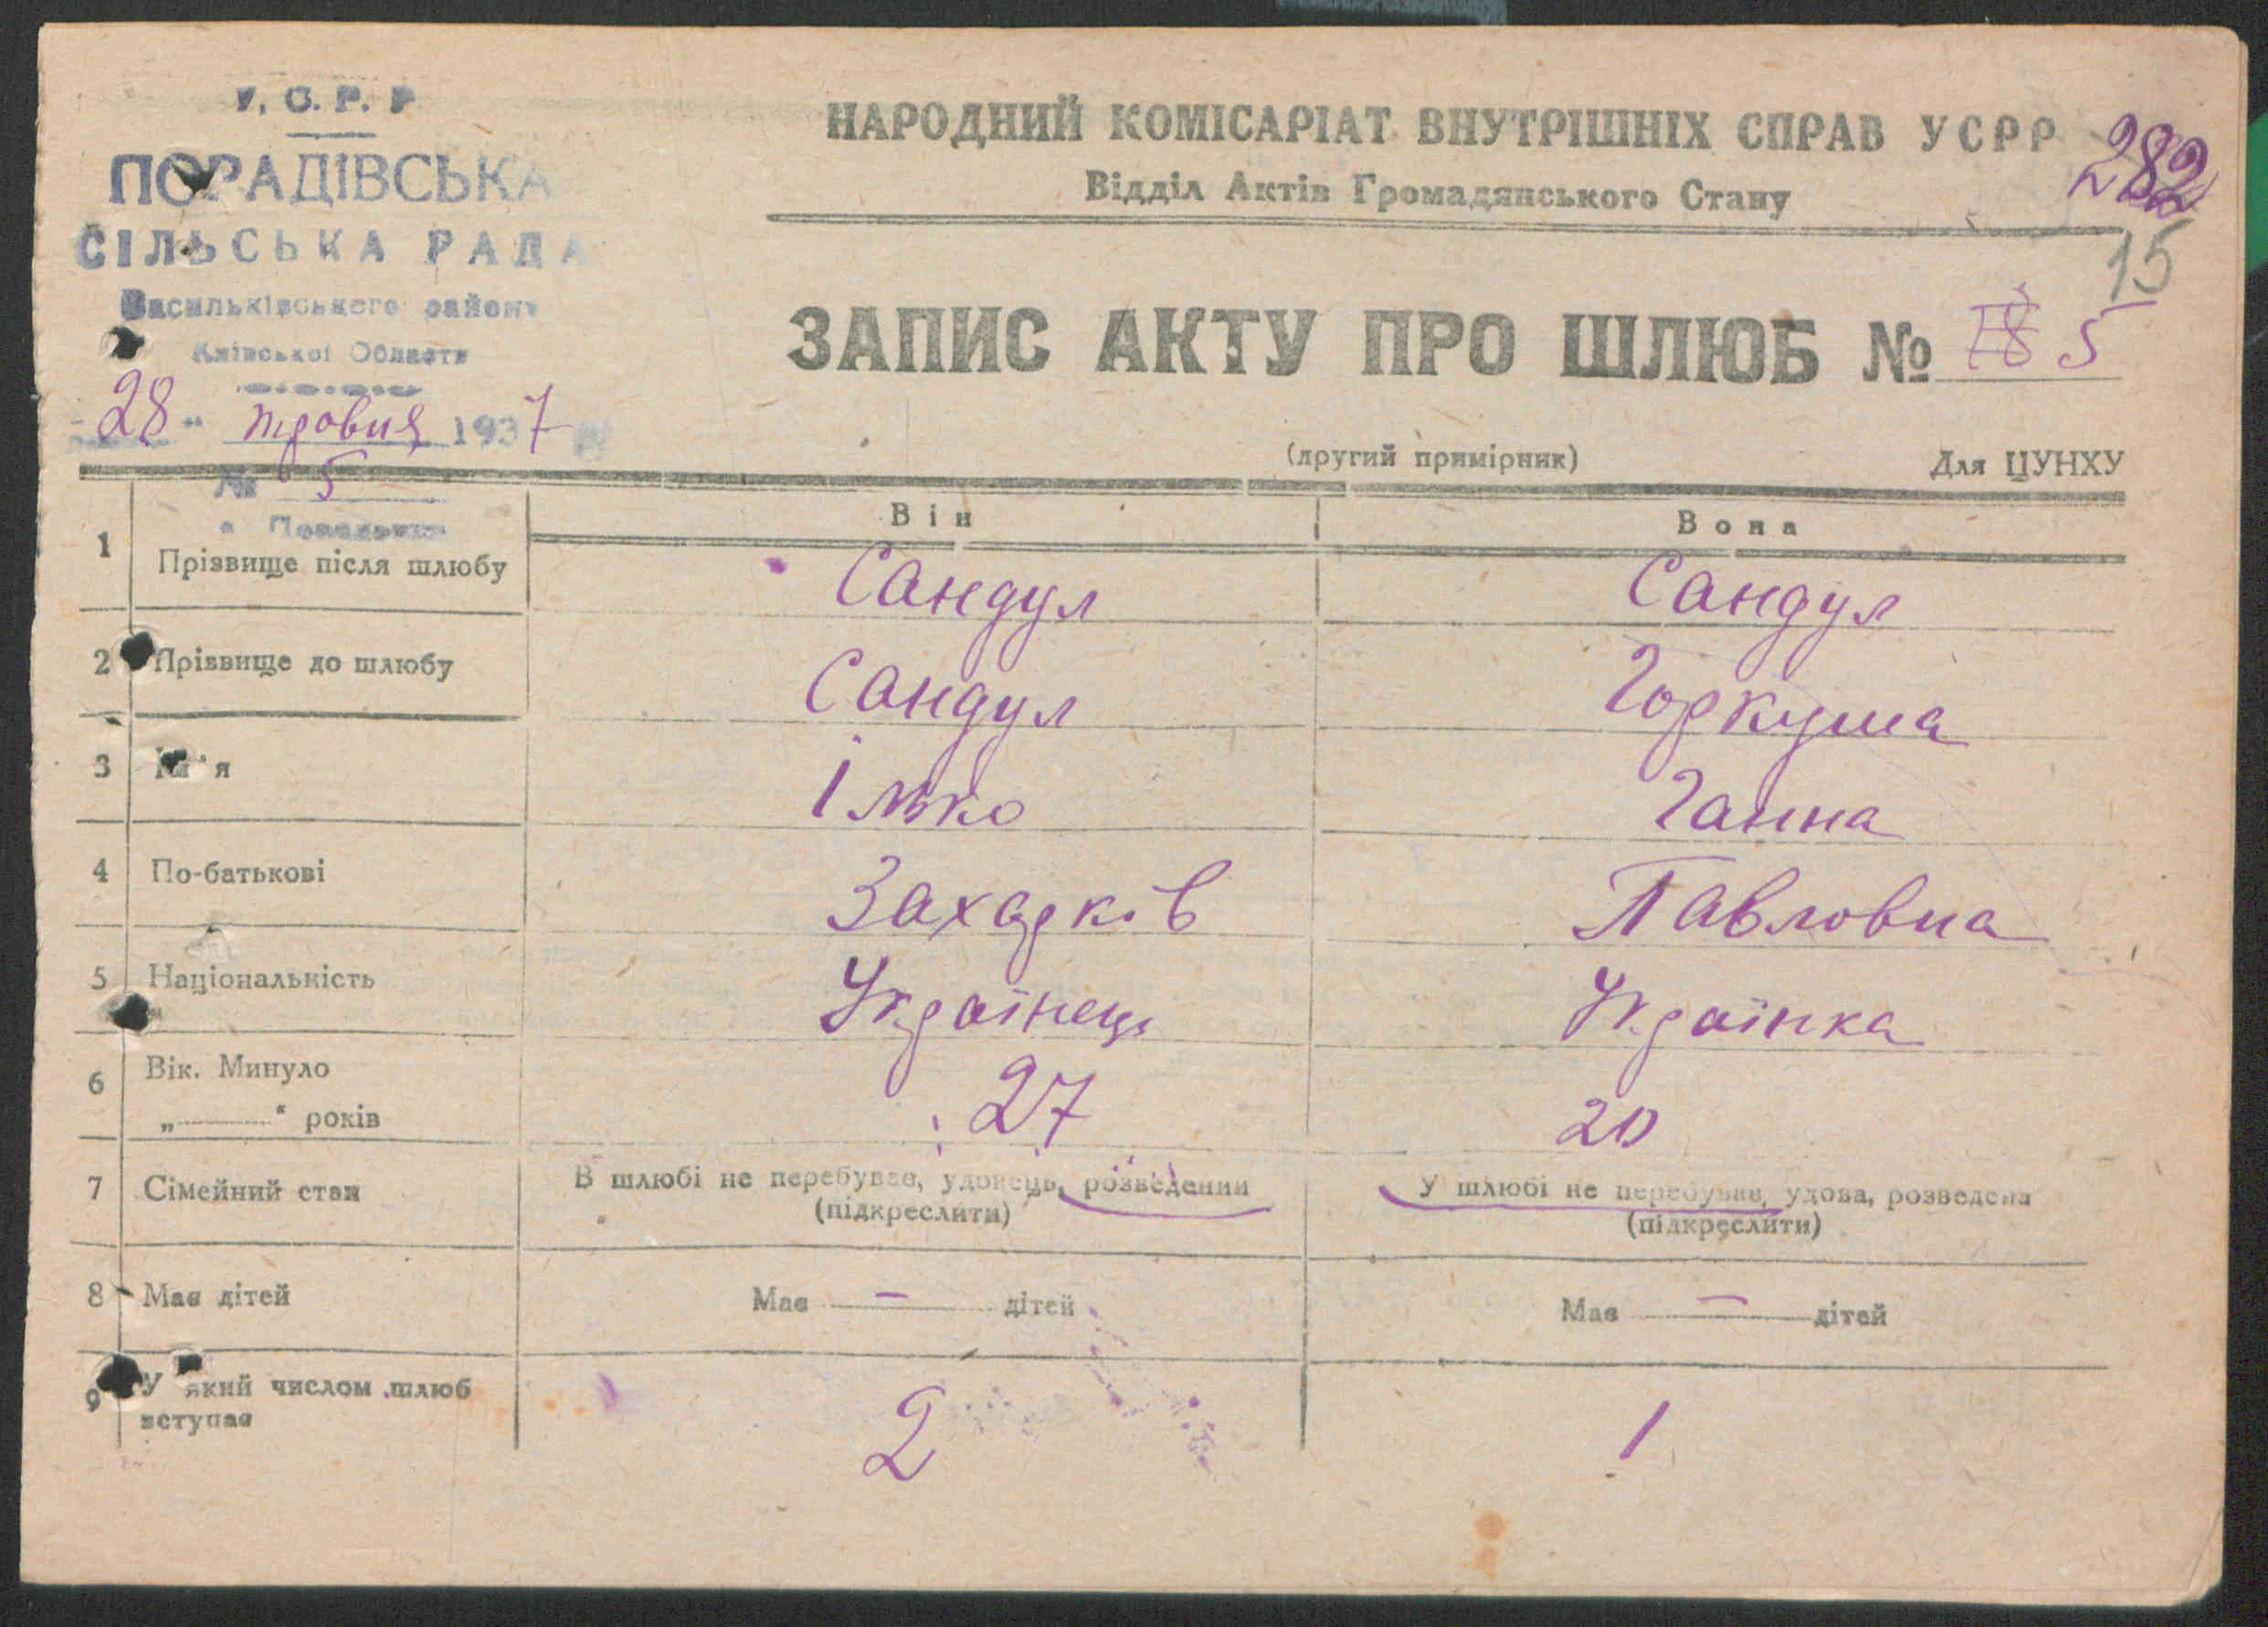 У. С. Р. Р.
ПОРАДІВСЬКА
СІЛЬСЬКА РАДА
Васильківського району
Київської Области
28 " тровня 1937
№ 5
НАРОДНИЙ КОМІСАРІАТ ВНУТРІШНІХ СПРАВ УСРР
282
Відділ Актів Громадянського Стану
15
ЗАПИС АКТУ ПРО ШЛЮБ № 18 5
(другий примірник) Для ЦУНХУ
Він Вона
1 Прізвище після шлюбу Сандул Сандул
2 Прізвище до шлюбу Сандул Горкуша
3 Им'я Ілько Ганна
4 По-батькові Захарків Павловна
5 Національність Українець Українка
6 Вік. Минуло
„ “ років 27 20
7 Сімейний стан В шлюбі не перебував, удовець, розведений У шлюбі не перебував, удова, розведена
(підкреслити) (підкреслити)
8 Має дітей Має — дітей Має — дітей
9 У який числом шлюб
вступає 2 1